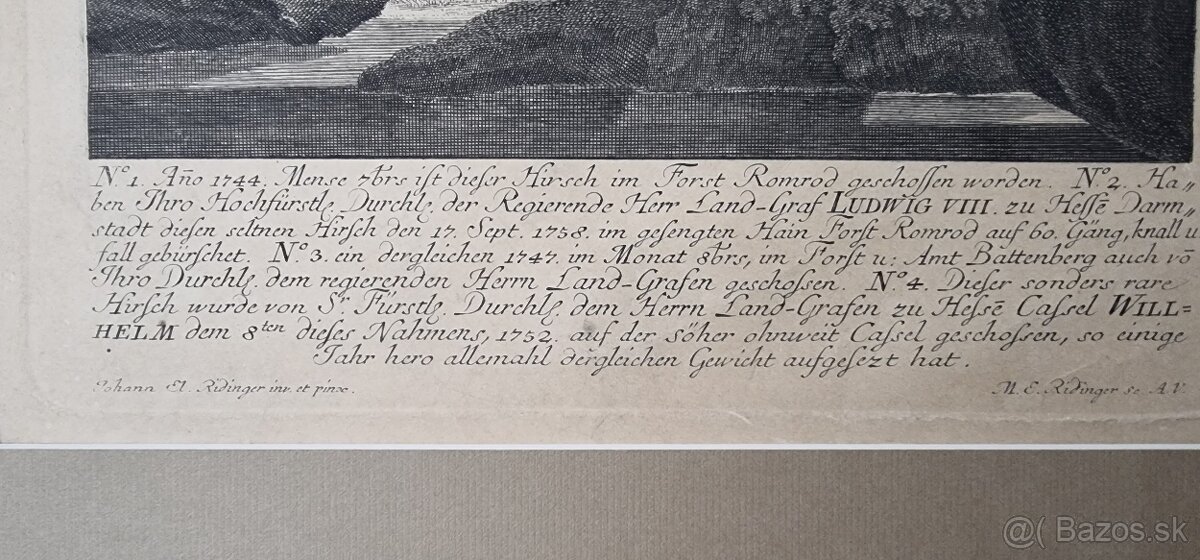 N.o 1. Año 1744. Mense 7brs ist dieser Hirsch im Forst Romrod geschossen worden. N.o 2. Ha„
ben Ihro Hochfürstlꝛ. Durchlꝛ. der Regierende Herr Land-Graf LUDWIG VIII. zu Hessē Darm„
stadt diesen seltnen Hirsch den 17. Sept. 1758. im gesengten Hain Forst Romrod auf 60. Gäng, knall u
fall gebürschet. N.o 3. ein dergleichen 1747. im Monat 8brs, im Forst u: Amt Battenberg auch vō
Ihro Durchlꝛ. dem regierenden Herrn Land-Grafen geschossen. N.o 4. Dieser sonders rare
Hirsch wurde von Sr. Fürstlꝛ. Durchlꝛ. dem Herrn Land-Grafen zu Hessē Cassel WILL=
HELM dem 8ten dieses Nahmens, 1752. auf der söher ohnweit Cassel geschossen, so einige
Jahr hero allemahl dergleichen Gewicht aufgesezt hat.
Johann El. Ridinger inv. et pinx.
M. E. Ridinger sc. A.V.
@( Bazos.sk